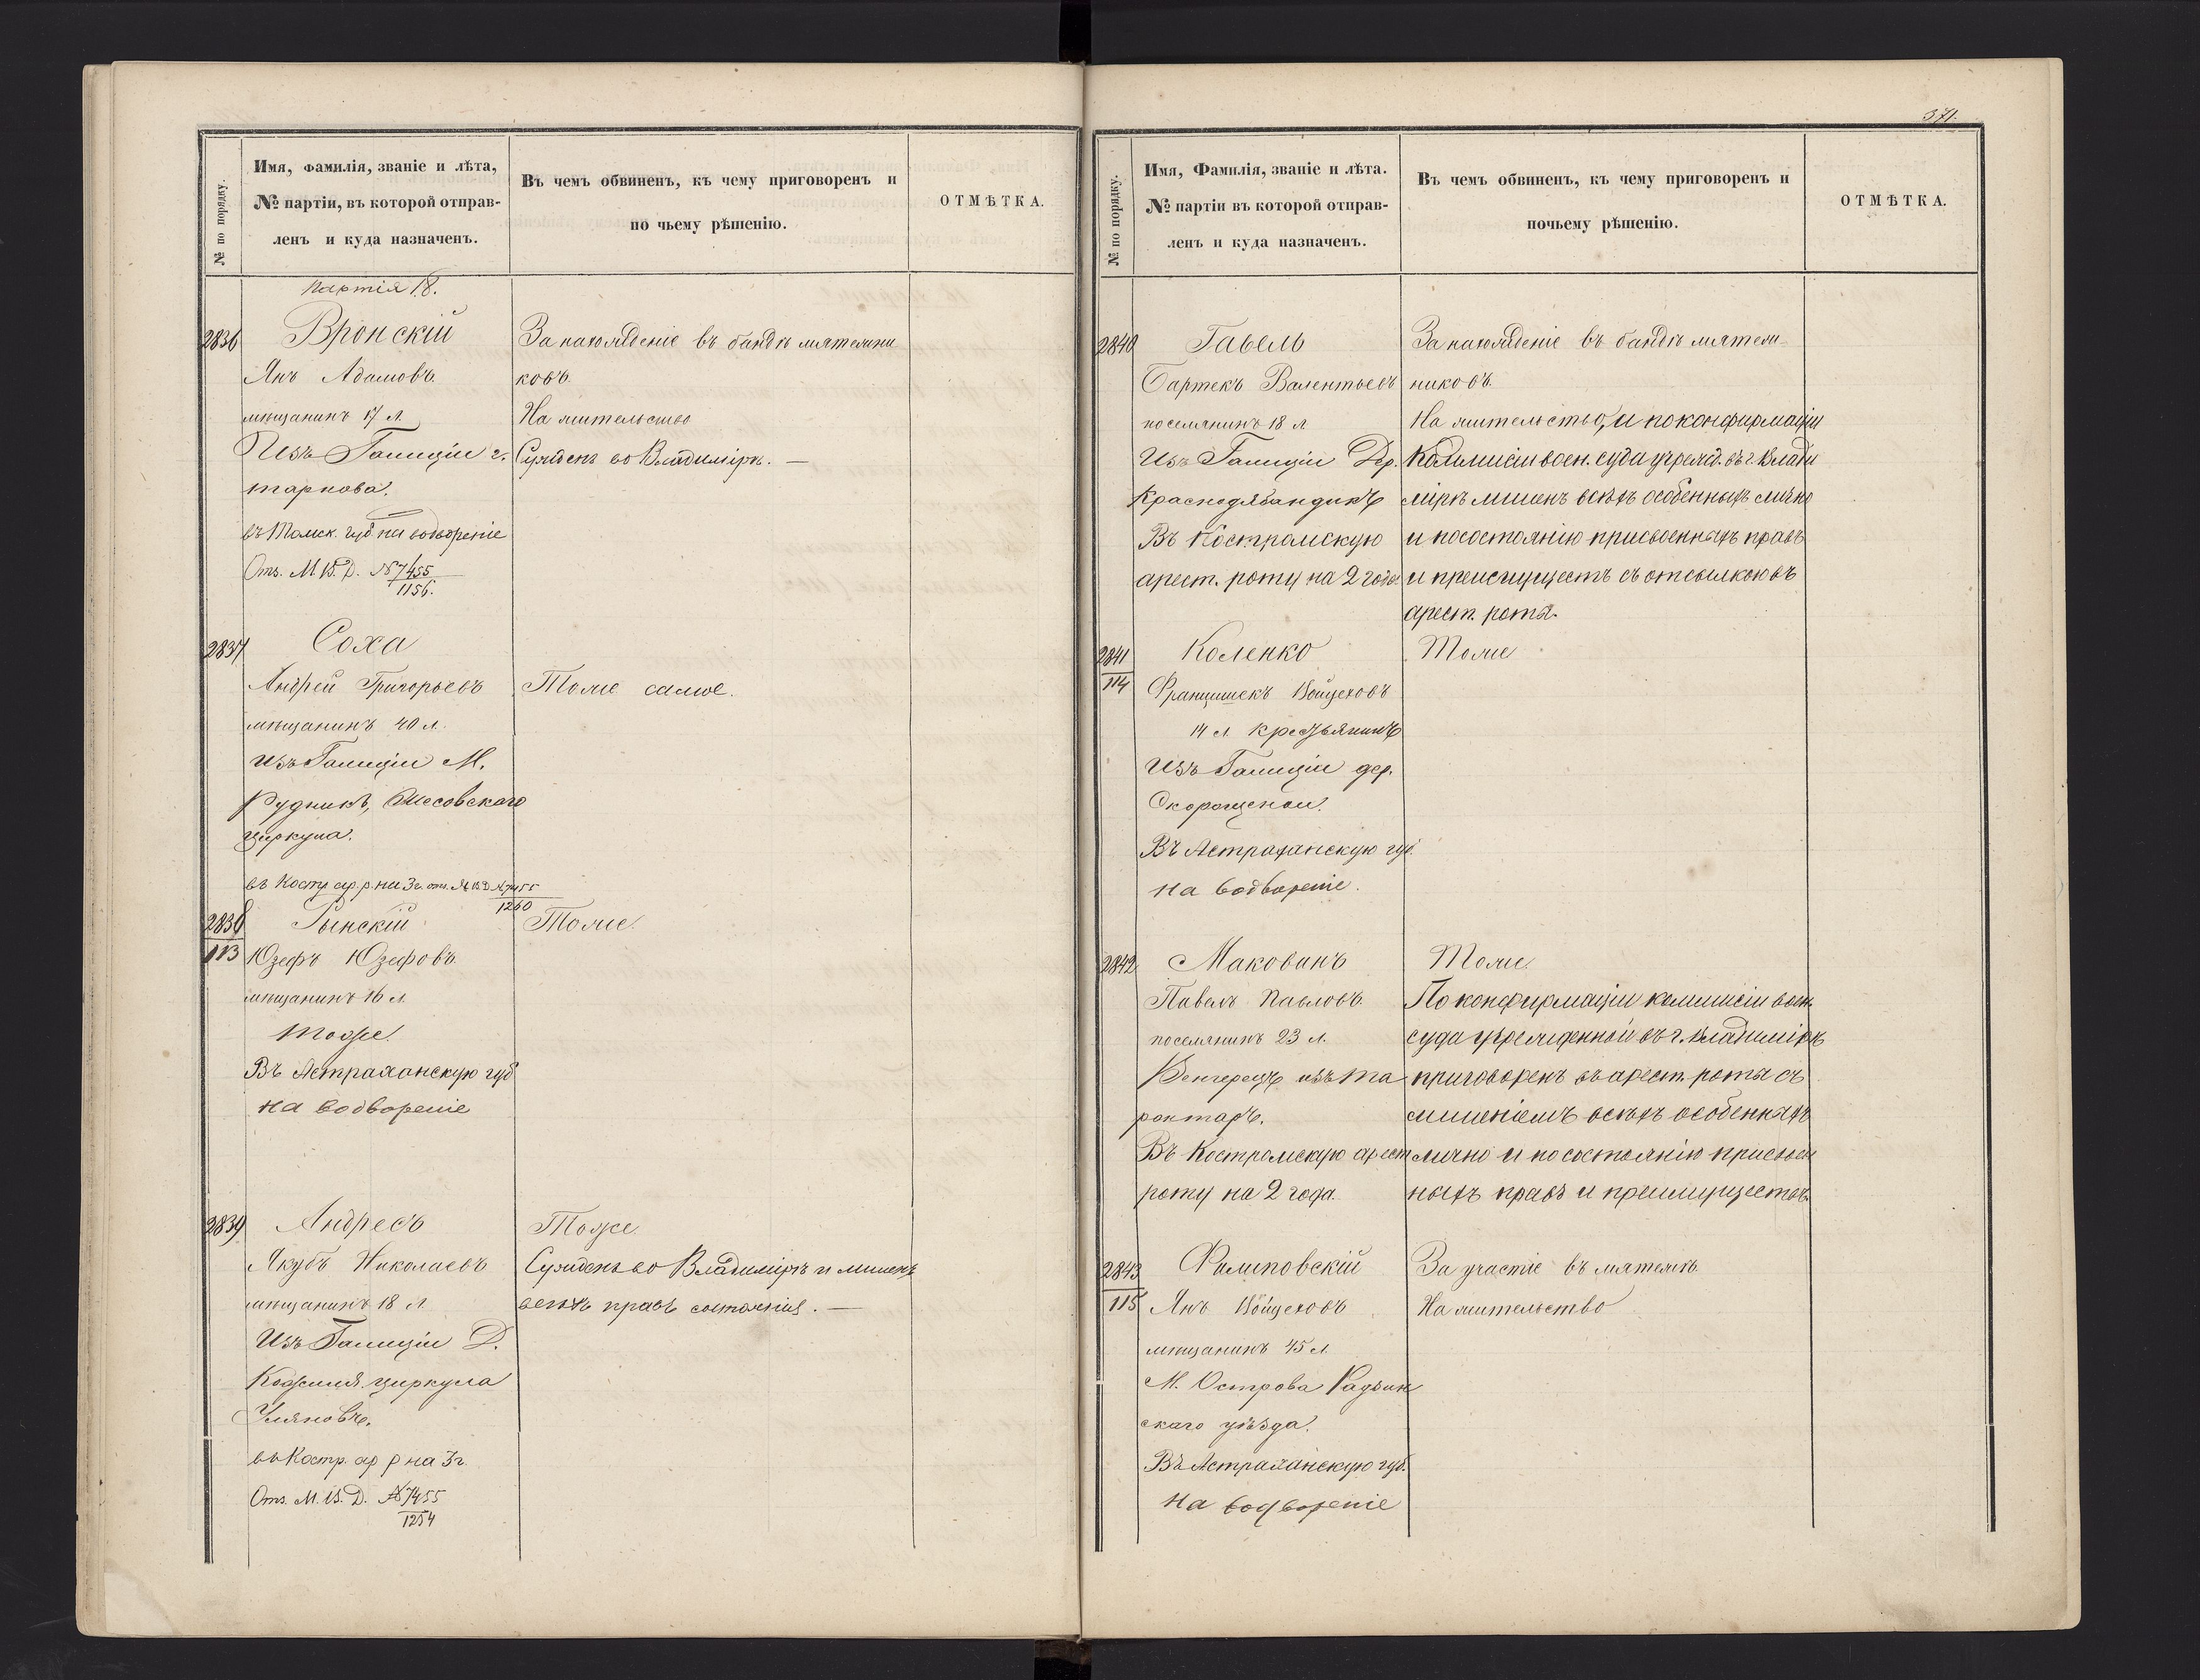 371.
№ по порядку.
Имя, фамилія, званіе и лѣта,
№ партіи, въ которой отправ-
ленъ и куда назначенъ.
Въ чемъ обвиненъ, къ чему приговоренъ и
по чьему рѣшенію.
ОТМѢТКА.
Партія 18.
2836
Вронскій
Янъ Адамовъ
мѣщанинъ 17 л.
Изъ Галиціи г.
Тарнова.
въ Томск. губ на водвореніе
Отз. М.В.Д. № 7455
1156.
За нахожденіе въ бандѣ мятежни
ковъ.
На жительство
Сужденъ во Владимірѣ. —
2837
Соха
Андрей Григорьевъ
мѣщанинъ 40 л.
Изъ Галиціи М.
Рудникъ,
циркула.
въ Костр ар. р. на 3 г. отз. М.В.Д. № 7455
1260
Тоже самое.
2838
113
Рынскій
Юзефъ Юзефовъ
мѣщанинъ 16 л.
Тоже.
Въ Астраханскую губ
на водвореніе
Тоже.
2839
Андресъ
Якубъ Николаевъ
мѣщанинъ 18 л.
Изъ Галиціи Д.
циркула
Уляновъ.
въ Костр. ар р на 3 г.
Отз. М.В.Д. № 7455
1254
Тоже
Сужденъ во Владимірѣ и лишенъ
всѣхъ правъ состоянія. —
№ по порядку.
Имя, Фамилія, званіе и лѣта.
№ партіи въ которой отправ-
ленъ и куда назначенъ.
Въ чемъ обвиненъ, къ чему приговоренъ и
почьему рѣшенію.
ОТМѢТКА.
2840
Гавель
Бартекъ Валентьевъ
поселянинъ 18 л.
Изъ Галиціи Дер.
Въ Костромскую
арест. роту на 2 года.
За нахожденіе въ бандѣ мятеж-
никовъ.
На жительство, и по конфирмаціи
Коммисіи воен. суда учрежд. въ г. Влади
мірѣ лишенъ всѣхъ особенныхъ лично
и по состоянію присвоенныхъ правъ
и преимуществъ съ отсылкою въ
арест. роты.
2841
114
Коленко
Францишекъ Войцеховъ
14 л. крестьянинъ
Изъ Галиціи дер.
Въ Астраханскую губ.
на водвореніе.
Тоже
2842
Маковинъ
Павелъ Павловъ.
поселянинъ 23 л.
Венгерецъ изъ Та
Въ Костромскую арест
роту на 2 года.
Тоже.
По конфирмаціи коммисіи воен.
суда учрежденной въ г. Владимірѣ
приговоренъ въ арест. роты съ
лишеніемъ всѣхъ особенныхъ
лично и по состоянію присвоен
ныхъ правъ и преимуществъ.
2843
115
Филиповскій
Янъ Войцеховъ
мѣщанинъ 45 л.
М. Острова Радзин
скаго уѣзда.
Въ Астраханскую губ.
на водвореніе
За участіе въ мятежѣ.
На жительство